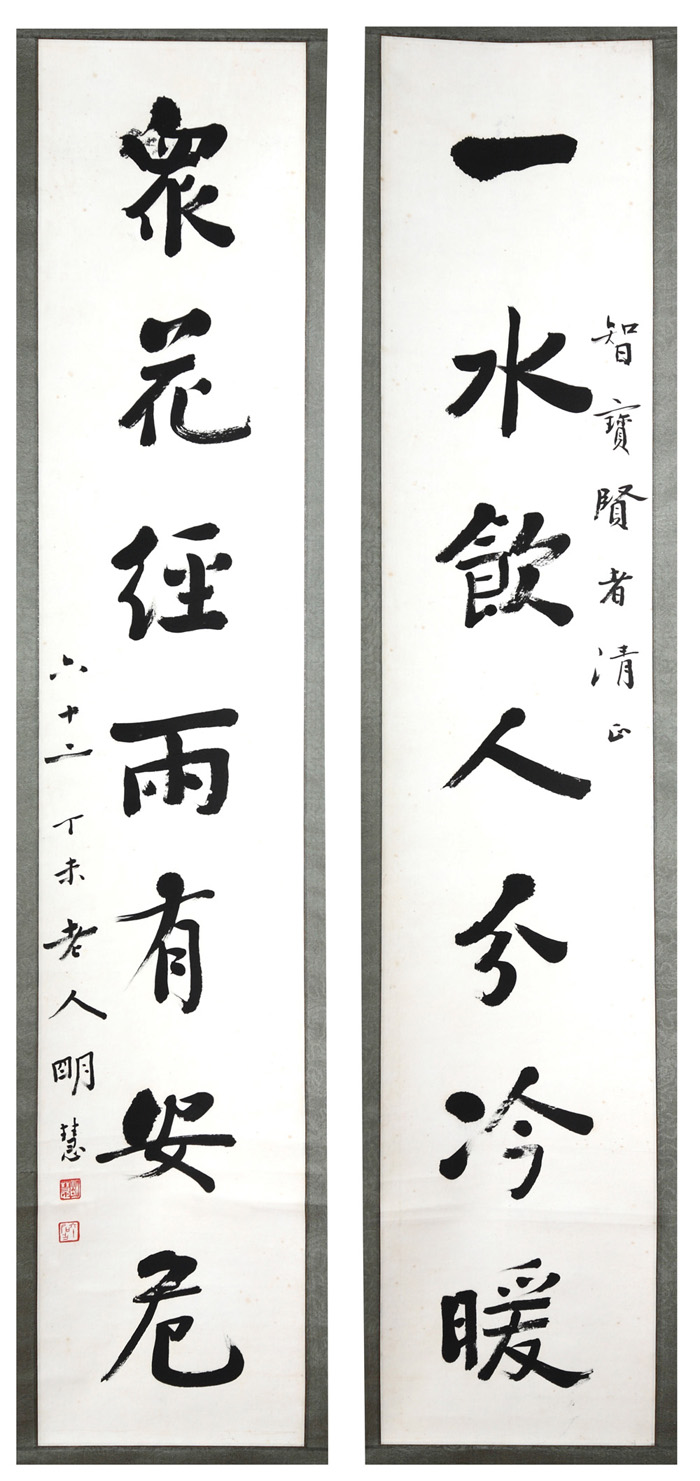 智寶賢者清正
一水飲人分冷暖
眾花經雨有安危
六十二丁未老人明慧